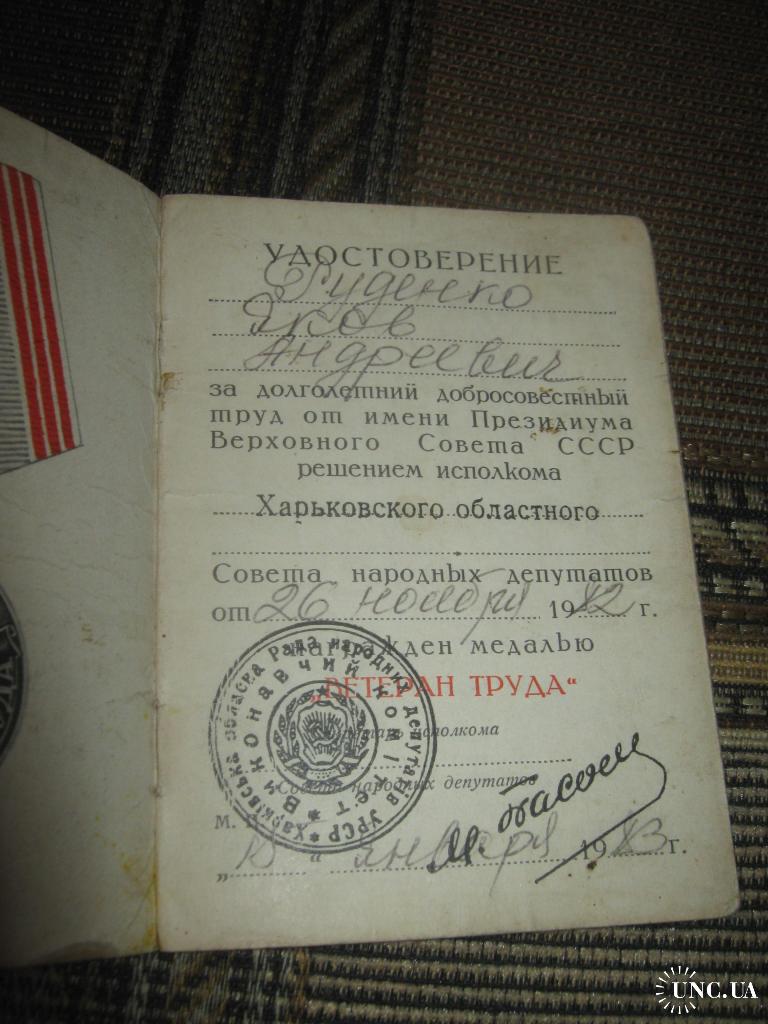 УДОСТОВЕРЕНИЕ
Руденко
Яков
Андреевич
за долголетний добросовестный
труд от имени Президиума
Верховного Совета СССР
решением исполкома
Харьковского областного
Совета народных депутатов
от 26 ноября 1982 г.
награжден медалью
„ВЕТЕРАН ТРУДА“
исполкома
Совета народных депутатов
Харківська обласна Рада народних депутатів УРСР
Виконавчий комітет
М.
„18“ января 1983 г.
UNC.UA